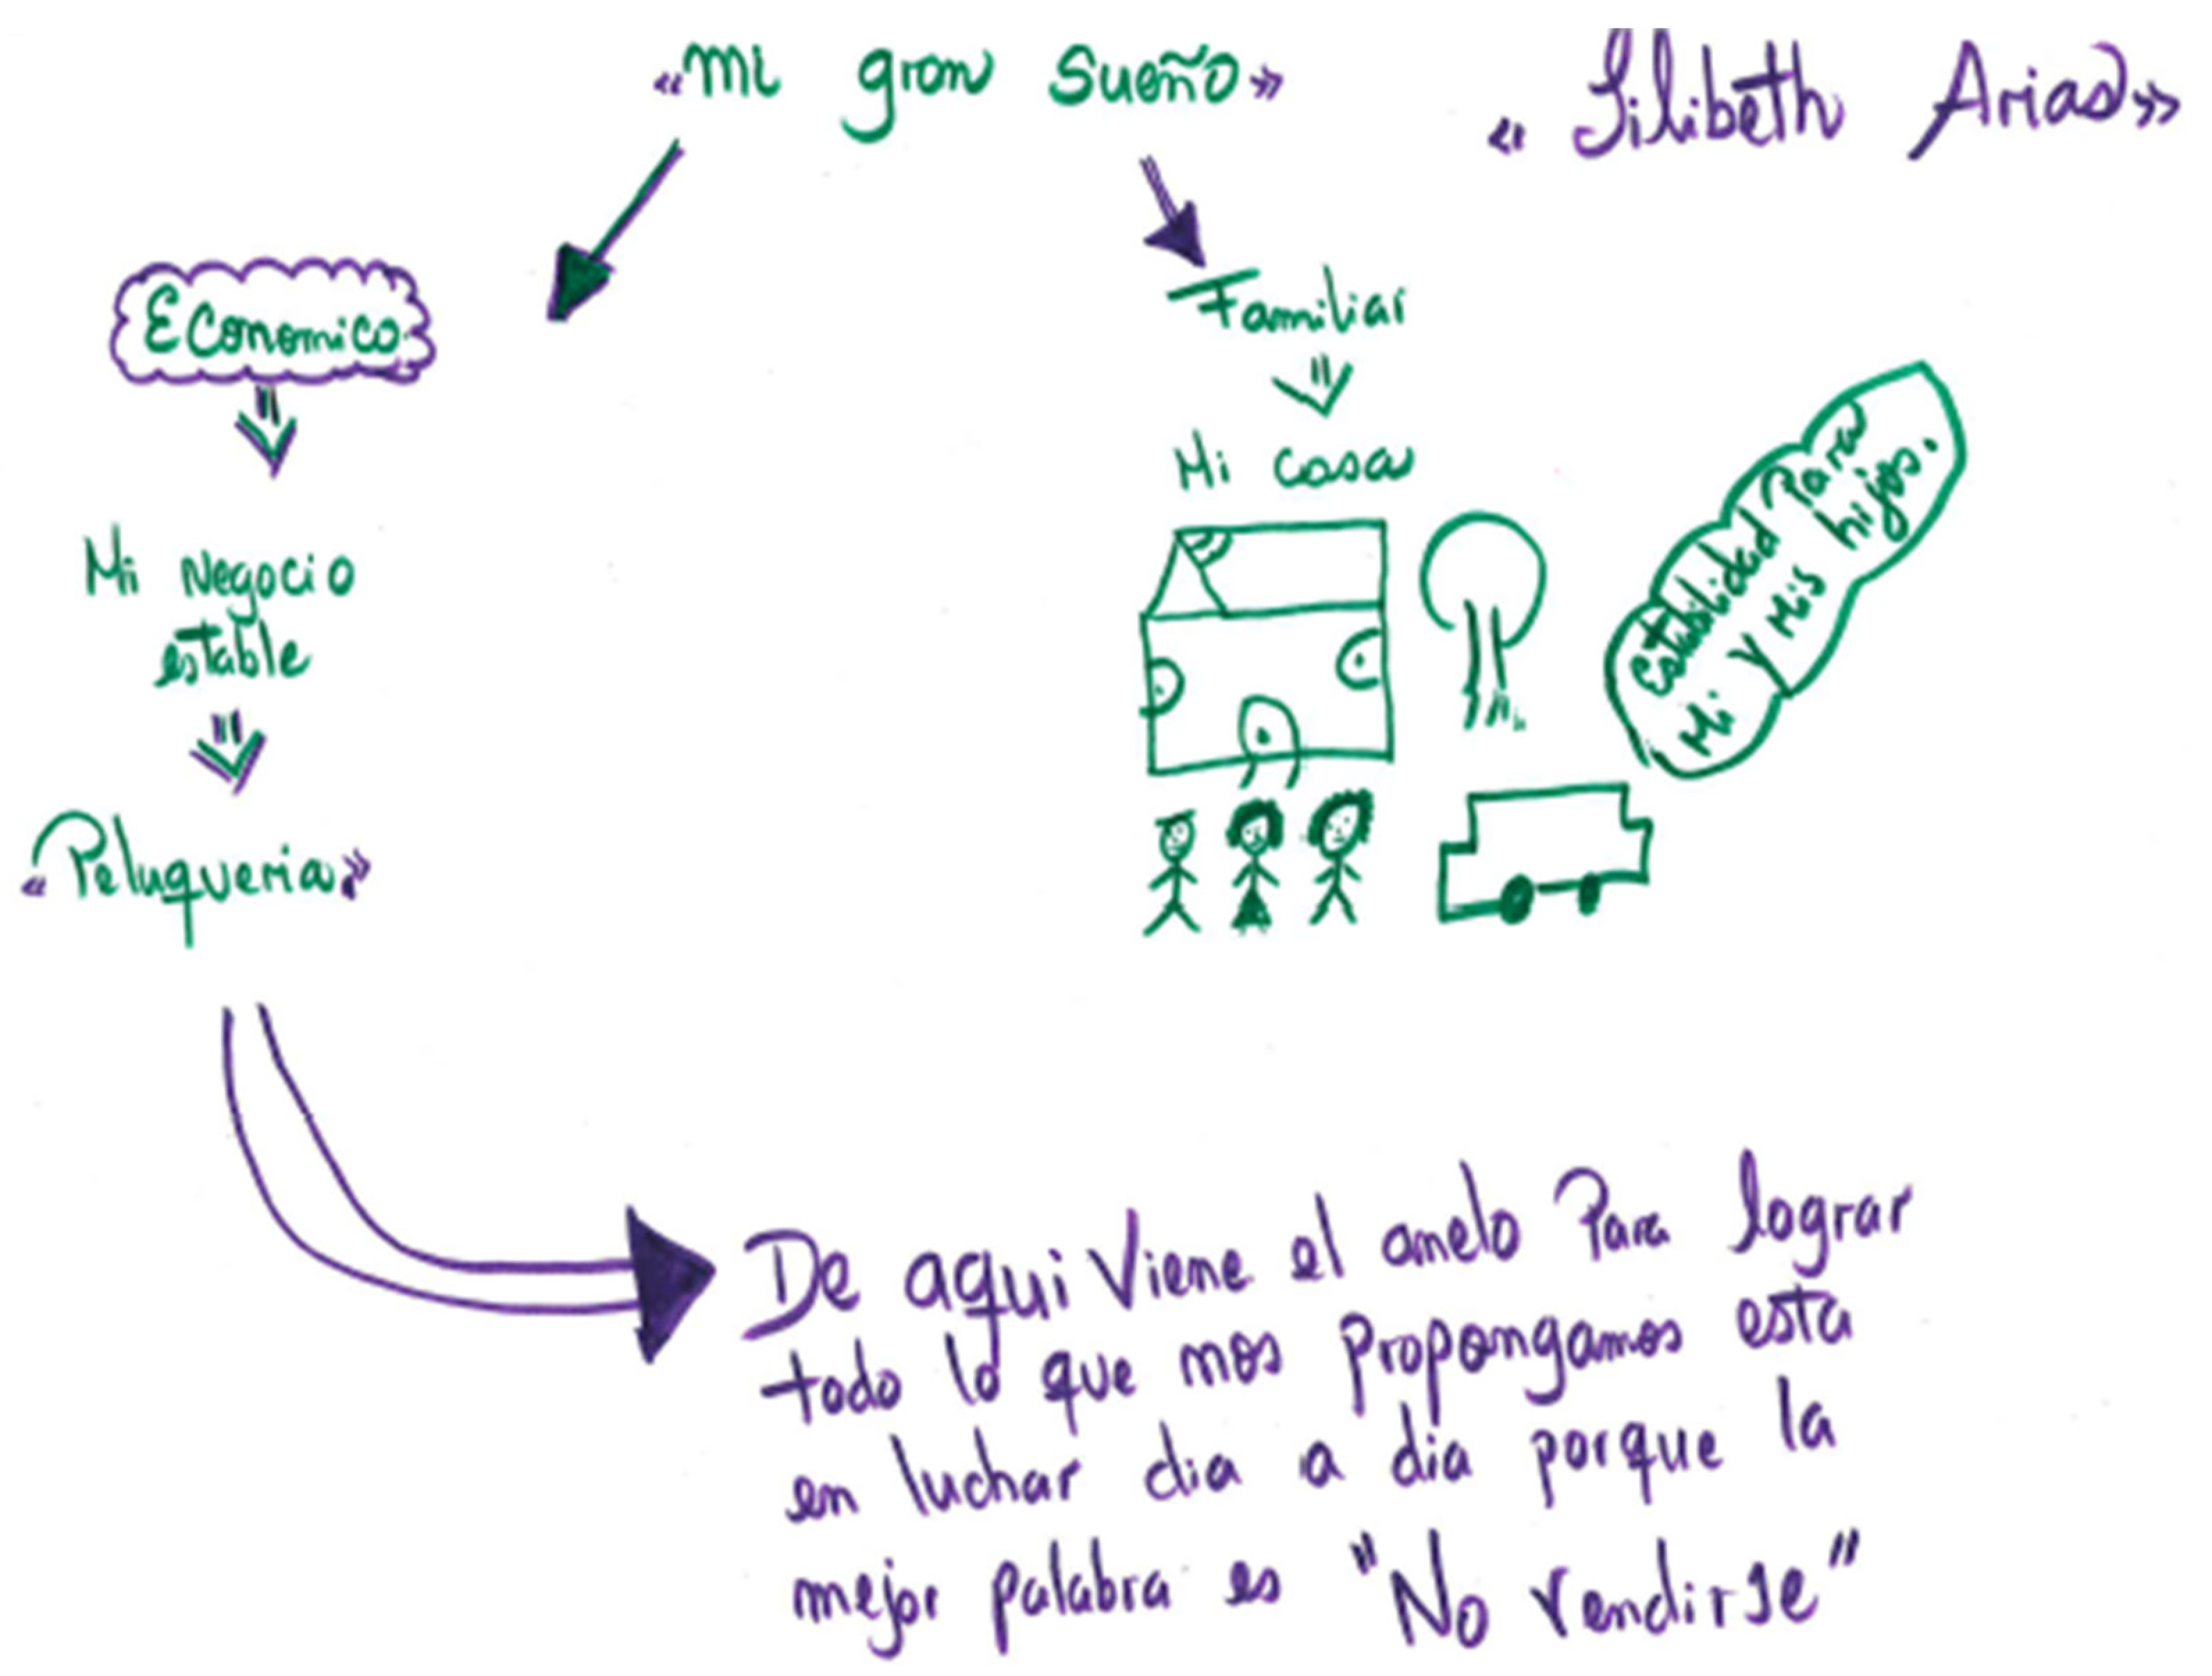 «Mi gran Sueño»
«Silibeth Arias»
Economico
Familiar
Mi casa
Estabilidad Para
Mi y Mis hijos.
Mi Negocio
estable
«Peluqueria»
De aqui Viene el anelo Para lograr
todo lo que nos Propongamos esta
en luchar dia a dia porque la
mejor palabra es "No rendirse"